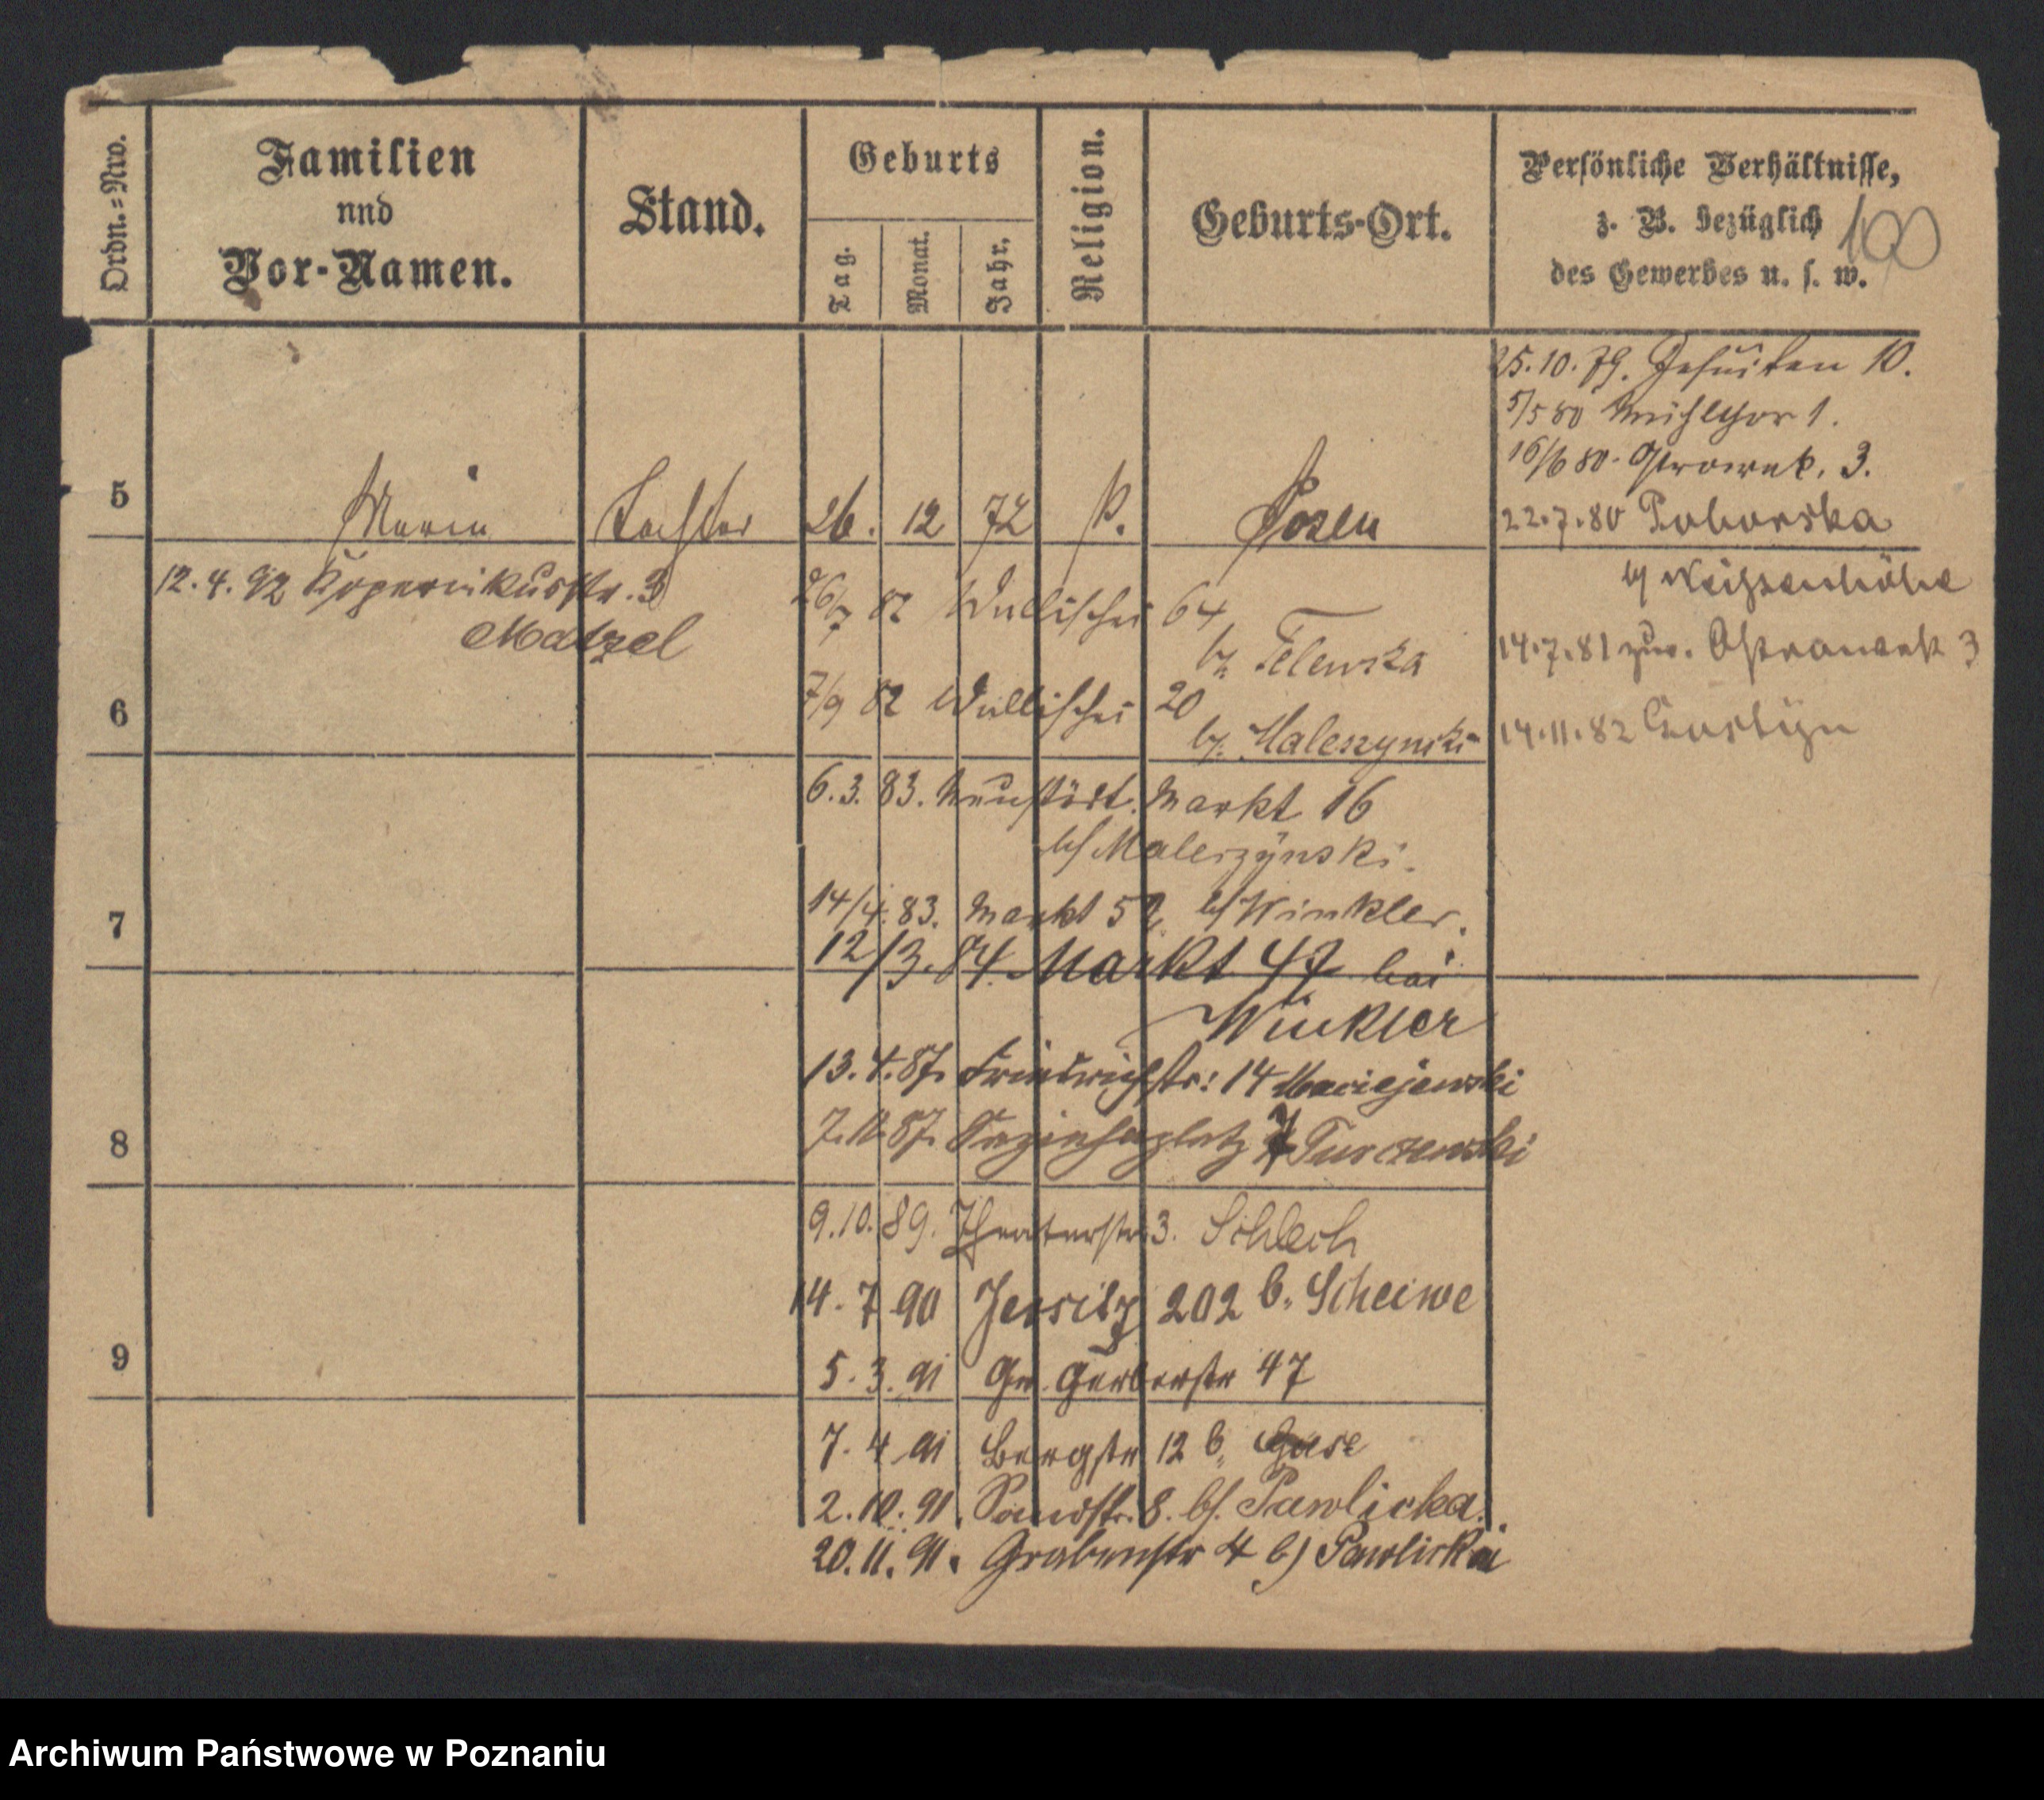 Ordn.=Nro.
Familien
und
Vor-Namen.
Stand.
Geburts
Tag.
Monat.
Jahr.
Religion.
Geburts-Ort.
Persönliche Verhältnisse,
z. B. bezüglich
des Gewerbes u. s. w.
100
25.10.79. Jesuiten 10.
5/5 80 Mühlthor 1.
16/6 80. Ostrowek. 3.
5 Maria Tochter 26. 12 72 k. Posen
22.7.80
b/ Weissenhöhe
14.7.81 zur. Ostrowek 3
14.11.82 Gostyn
12.4.92 Kopernikusstr. 3
Matzel
26/7 82 Wallischei 64
bz Telewska
6
7/9 82 Wallischei 20
bz. Maleszynski
6.3.83. Neustädt. Markt 16
b/ Maleszynski.
7
14/4.83. Markt 52 b/ Winkler.
12/3.84. Markt 47 bei
Winkler
13.4.87. Friedrichstr: 14 Maciejewski
8
7.10.87. 7 Turczewski
9.10.89. Theaterstr. 3. Schlech
14.7 90 Jersitz 202 b. Scheiwe
9
5.3.91 Gr. Gerberstr 47
7.4 91 Bergstr 12 b.
2.10.91. Sandstr. 8. b/. Pawlicka.
20.11.91. Grabenstr 4 b) Pawlicka
Archiwum Państwowe w Poznaniu